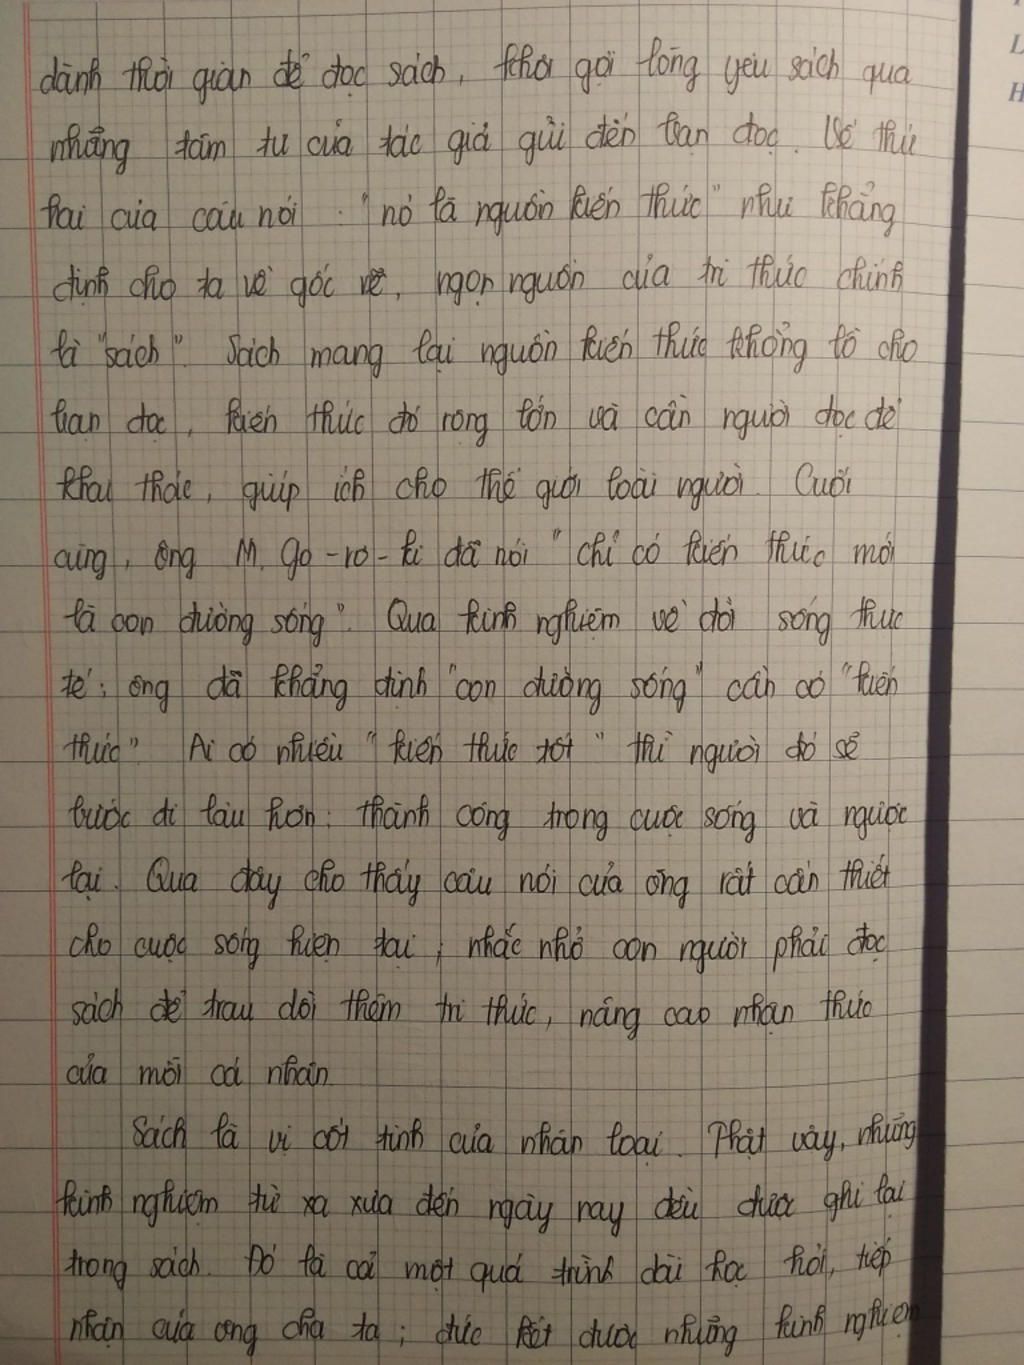 dành thời gian để đọc sách, khơi gợi lòng yêu sách qua
những tâm tư của tác giả gửi đến bạn đọc. Vế thứ
hai của câu nói : "nó là nguồn kiến thức" như khẳng
định cho ta về gốc rễ, ngọn nguồn của tri thức chính
là "sách". Sách mang lại nguồn kiến thức khổng lồ cho
bạn đọc, kiến thức đó rộng lớn và cần người đọc để
khai thác, giúp ích cho thế giới loài người. Cuối
cùng, ông M. Go-rơ-ki đã nói "chỉ có kiến thức mới
là con đường sống". Qua kinh nghiệm về đời sống thực
tế; ông đã khẳng định "con đường sống" cần có "kiến
thức". Ai có nhiều "kiến thức tốt" thì người đó sẽ
bước đi lâu hơn; thành công trong cuộc sống và ngược
lại. Qua đây cho thấy câu nói của ông rất cần thiết
cho cuộc sống hiện tại; nhắc nhở con người phải đọc
sách để trau dồi thêm tri thức, nâng cao nhận thức
của mỗi cá nhân
Sách là vị cốt tinh của nhân loại. Thật vậy, những
kinh nghiệm từ xa xưa đến ngày nay đều được ghi lại
trong sách. Đó là cả một quá trình dài học hỏi, tiếp
nhận của ông cha ta; đúc kết được những kinh nghiệm
L
H